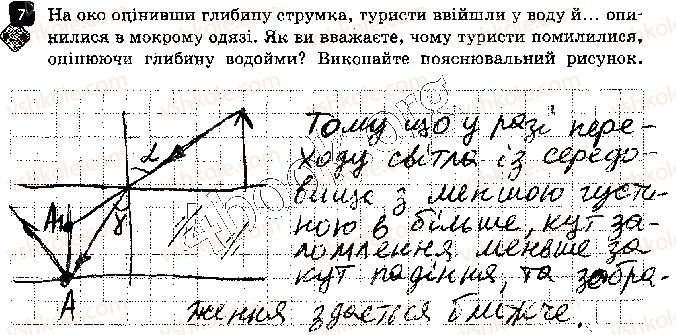 7 На око оцінивши глибину струмка, туристи ввійшли у воду й... опи-
нилися в мокрому одязі. Як ви вважаєте, чому туристи помилилися,
оцінюючи глибину водойми? Виконайте пояснювальний рисунок.
Тому що у разі пере-
ходу світла із середо-
вища з меншою густи-
ною в більше, кут за-
ломлення меньше за
кут падіння, та зобра-
ження здається ближче.
α
γ
A₁
A
4book.org
vshkole.com